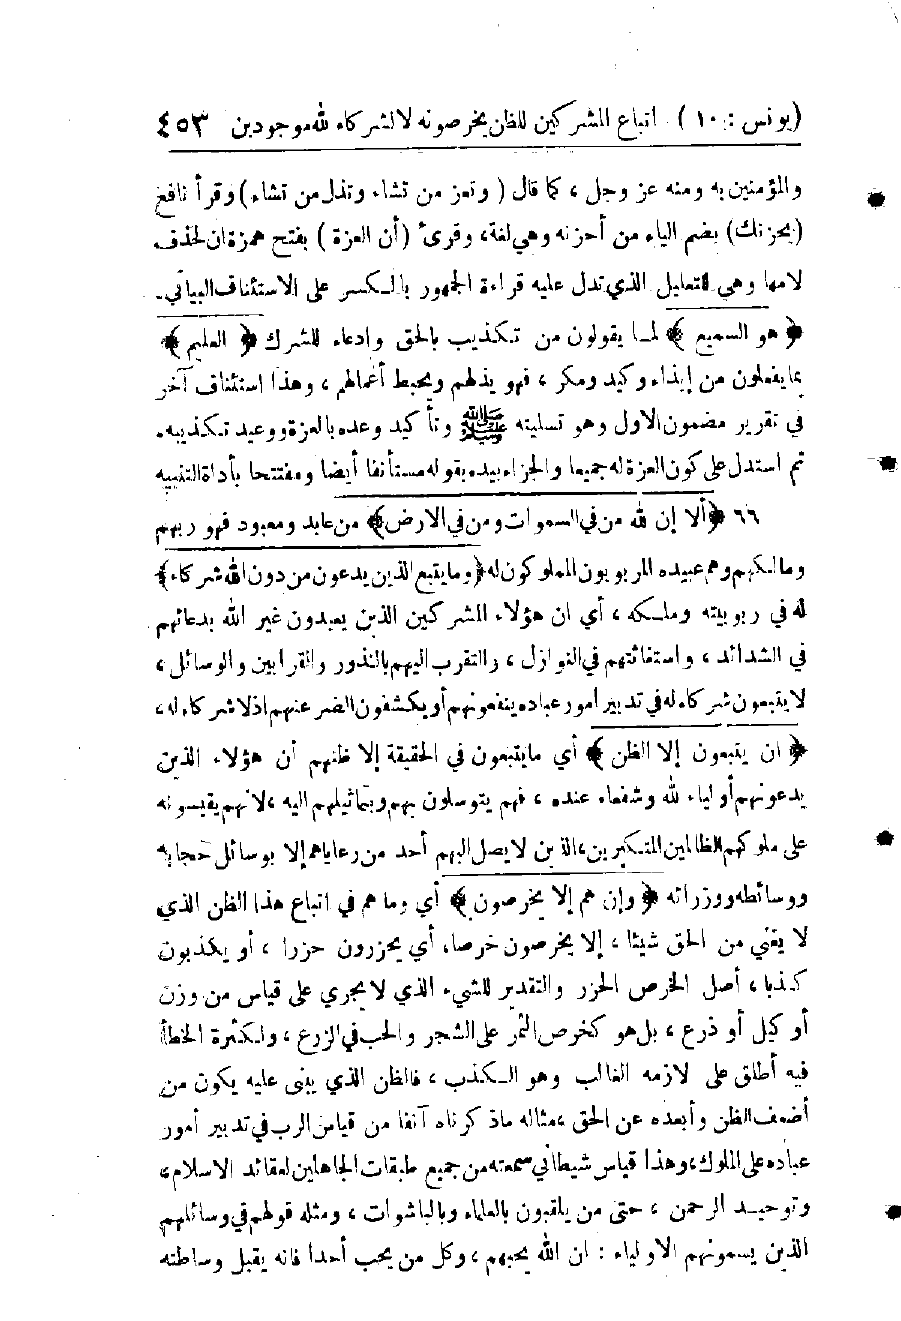 (يونس : ١٠) اتباع المشركين للظن يخرصونه لا لشركاء لله موجودين ٤٥٣
والمؤمنين به ومنه عز وجل ، كما قال ( وتعز من تشاء وتذل من تشاء ) وقرأ نافع
(يحزنك) بضم الياء من أحزنه وهي لغة، وقرئ (أن العزة ) بفتح همزة ان لحذف
لامها وهي للتعليل الذي تدل عليه قراءة الجمهور بالكسر على الاستئناف البياني.
﴿ هو السميع ﴾ لما يقولون من تكذيب بالحق وادعاء للشرك ﴿ العليم ﴾
بما يفعلون من إيذاء وكيد ومكر ، فهو يذلهم ويحبط أعمالهم ، وهذا استئناف آخر
في تقرير مضمون الاول وهو تسليته ﷺ وتأكيد وعده بالعزة ووعيد تكذيبه.
ثم استدل على كون العزة له جميعا والجزاء بيده بقوله مستأنفا أيضا ومفتتحا بأداة التنبيه
٦٦ ﴿ألا إن لله من في السموات ومن في الارض﴾ من عابد ومعبود فهو ربهم
ومالكهم وهم عبيده المربوبون المملوكون له ﴿وما يتبع الذين يدعون من دون الله شركاء﴾
له في ربوبيته وملكه ، أي ان هؤلاء المشركين الذين يعبدون غير الله بدعائهم
في الشدائد ، واستغاثتهم في النوازل ، والتقرب اليهم بالنذور والقرابين والوسائل ،
لا يتبعون شركاء له في تدبير أمور عباده ينفعونهم أو يكشفون الضر عنهم اذ لا شركاء له ،
﴿ ان يتبعون إلا الظن ﴾ أي ما يتبعون في الحقيقة إلا ظنهم أن هؤلاء الذين
يدعونهم أولياء لله وشفعاء عنده ، فهم يتوسلون بهم وبتماثيلهم اليه ، لانهم يقيسونه
على ملوكهم الظالمين المتكبرين، الذين لا يصل اليهم أحد من رعاياهم إلا بوسائل حجابه
ووسائطه ووزرائه ﴿ وإن هم إلا يخرصون ﴾ أي وما هم في اتباع هذا الظن الذي
لا يغني من الحق شيئا ، إلا يخرصون خرصا، أي يحزرون حزرا ، أو يكذبون
كذبا ، أصل الخرص الحزر والتقدير للشيء الذي لا يجري على قياس من وزن
أو كيل أو ذرع ، بل هو كخرص الثمر على الشجر والحب في الزرع ، ولكثرة الخطأ
فيه أطلق على لازمه الغالب وهو الكذب ، فالظن الذي يبنى عليه يكون من
أضعف الظن وأبعده عن الحق ، مثاله ماذكرناه آنفا من قياس الرب في تدبير أمور
عباده على الملوك، وهذا قياس شيطاني سمعته من جميع طبقات الجاهلين لعقائد الاسلام،
وتوحيد الرحمن ، حتى من يلقبون بالعلماء وبالباشوات ، ومثله قولهم في وسائلهم
الذين يسمونهم الاولياء : ان الله يحبهم ، وكل من يحب أحدا فانه يقبل وساطته